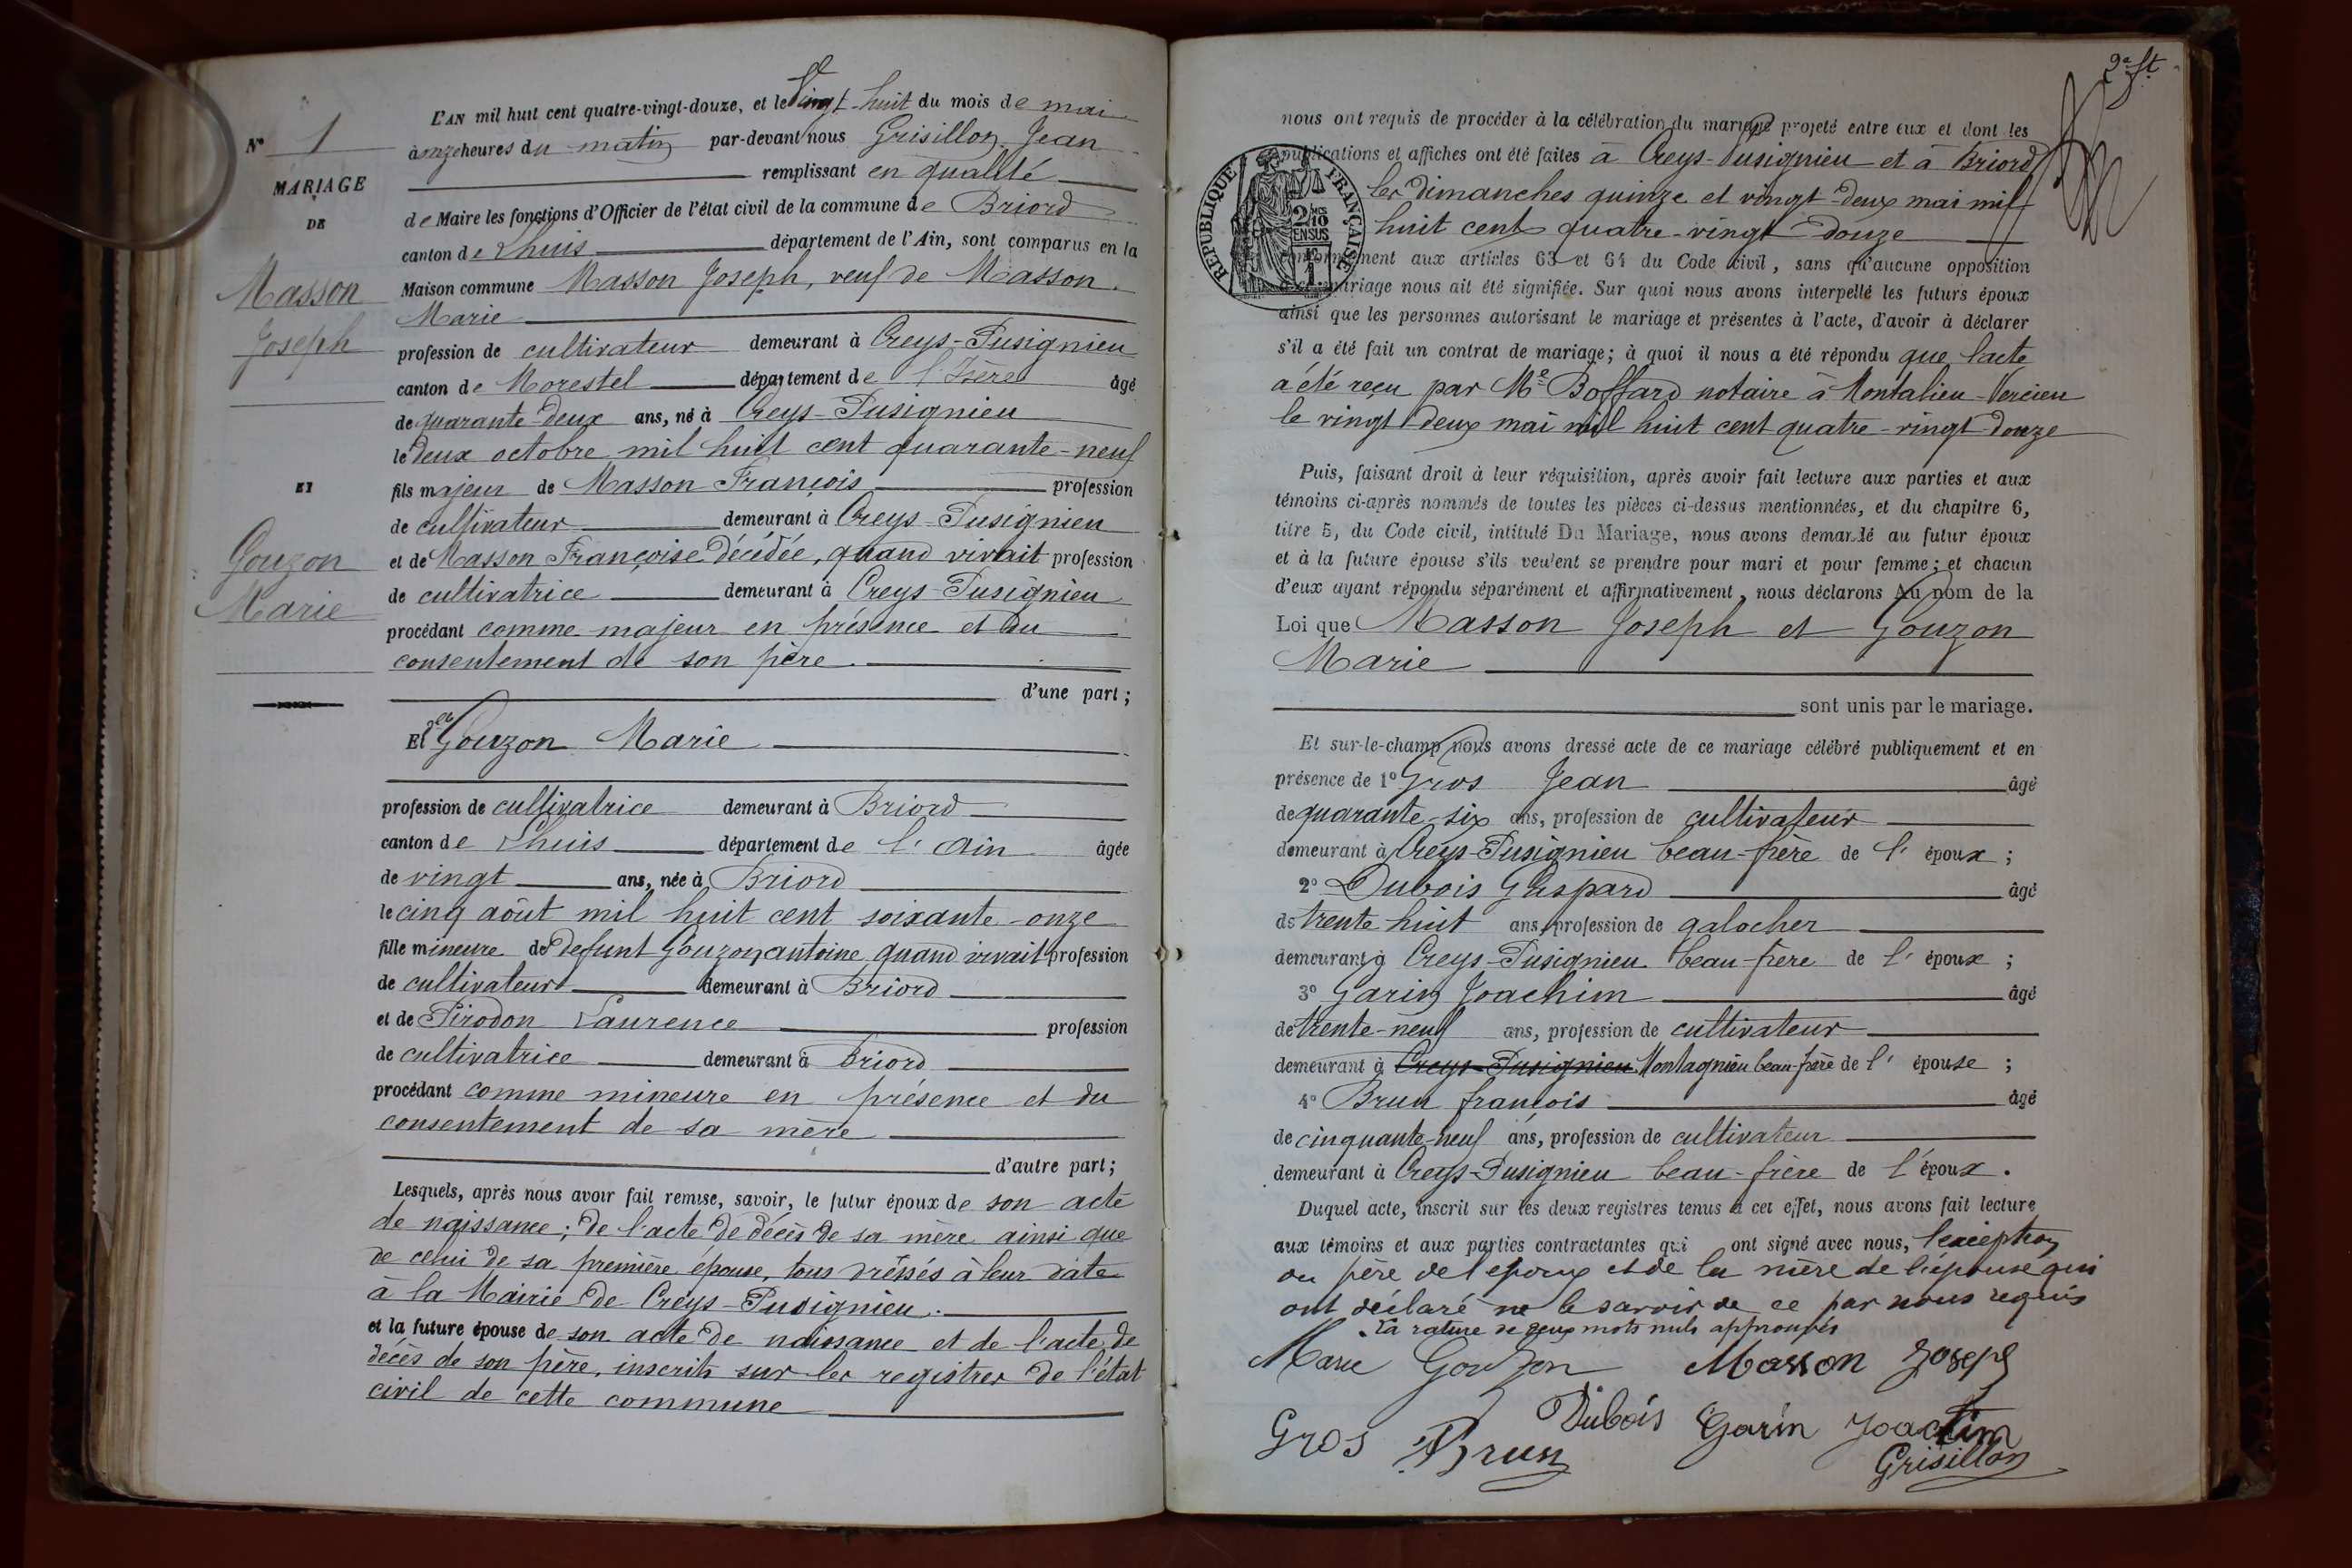 N° 1
MARIAGE
DE
Masson
Joseph
ET
Gouzon
Marie
L'AN mil huit cent quatre-vingt-douze, et le Vingt-huit du mois de mai
à onze heures du matin par-devant nous Grisillon Jean
remplissant en qualité
de Maire les fonctions d'Officier de l'état civil de la commune de Briord
canton de Lhuis département de l'Ain, sont comparus en la
Maison commune Masson Joseph, veuf de Masson
Marie
profession de cultivateur demeurant à Creys-Pusignieu
canton de Morestel département de l'Isère âgé
de quarante-deux ans, né à Creys-Pusignieu
le deux octobre mil huit cent quarante-neuf
fils majeur de Masson François profession
de cultivateur demeurant à Creys-Pusignieu
et de Masson Françoise décédée, quand vivait profession
de cultivatrice demeurant à Creys-Pusignieu
procédant comme majeur en présence et du
consentement de son père.
d'une part;
Et Gouzon Marie
profession de cultivatrice demeurant à Briord
canton de Lhuis département de l'Ain âgée
de vingt ans, née à Briord
le cinq août mil huit cent soixante-onze
fille mineure de défunt Gouzon antoine quand vivait profession
de cultivateur demeurant à Briord
et de Pirodon Laurence profession
de cultivatrice demeurant à Briord
procédant comme mineure en présence et du
consentement de sa mère
d'autre part;
Lesquels, après nous avoir fait remise, savoir, le futur époux de son acte
de naissance; de l'acte de décès de sa mère ainsi que
de celui de sa première épouse, tous dréssés à leur date
à la Mairie de Creys-Pusignieu.
et la future épouse de son acte de naissance et de l'acte de
décès de son père, inscrits sur les registres de l'état
civil de cette commune
2e ft
nous ont requis de procéder à la célébration du mariage projeté entre eux et dont les
publications et affiches ont été faites à Creys-Pusignieu et à Briord
les dimanches quinze et vingt-deux mai mil
huit cent quatre-vingt-douze
conformément aux articles 63 et 64 du Code civil, sans qu'aucune opposition
audit mariage nous ait été signifiée. Sur quoi nous avons interpellé les futurs époux
ainsi que les personnes autorisant le mariage et présentes à l'acte, d'avoir à déclarer
s'il a été fait un contrat de mariage; à quoi il nous a été répondu que l'acte
a été reçu par Me Boffard notaire à Montalieu-Vercieu
le vingt deux mai mil huit cent quatre-vingt-douze
RÉPUBLIQUE FRANÇAISE
2/10 EN SUS
Puis, faisant droit à leur réquisition, après avoir fait lecture aux parties et aux
témoins ci-après nommés de toutes les pièces ci-dessus mentionnées, et du chapitre 6,
titre 5, du Code civil, intitulé Du Mariage, nous avons demandé au futur époux
et à la future épouse s'ils veulent se prendre pour mari et pour femme; et chacun
d'eux ayant répondu séparément et affirmativement, nous déclarons Au nom de la
Loi que Masson Joseph et Gouzon
Marie
sont unis par le mariage.
Et sur-le-champ nous avons dressé acte de ce mariage célébré publiquement et en
présence de 1° Gros Jean âgé
de quarante-six ans, profession de cultivateur
demeurant à Creys-Pusignieu beau-frère de l'époux;
2° Dubois Gaspard âgé
de trente huit ans, profession de galocher
demeurant à Creys-Pusignieu beau-frère de l'époux;
3° Garin Joachim âgé
de trente-neuf ans, profession de cultivateur
demeurant à Creys-Pusignieu Montagnieu beau-frère de l'épouse;
4° Brun françois âgé
de cinquante-neuf ans, profession de cultivateur
demeurant à Creys-Pusignieu beau-frère de l'époux.
Duquel acte, inscrit sur les deux registres tenus à cet effet, nous avons fait lecture
aux témoins et aux parties contractantes qui ont signé avec nous, l'exception
du père de l'époux et de la mère de l'épouse qui
ont déclaré ne le savoir de ce par nous requis
. La rature de deux mots nuls approuvés
Marie Gouzon Masson Joseph
Dubois Garin Joachim
Gros Brun
Grisillon